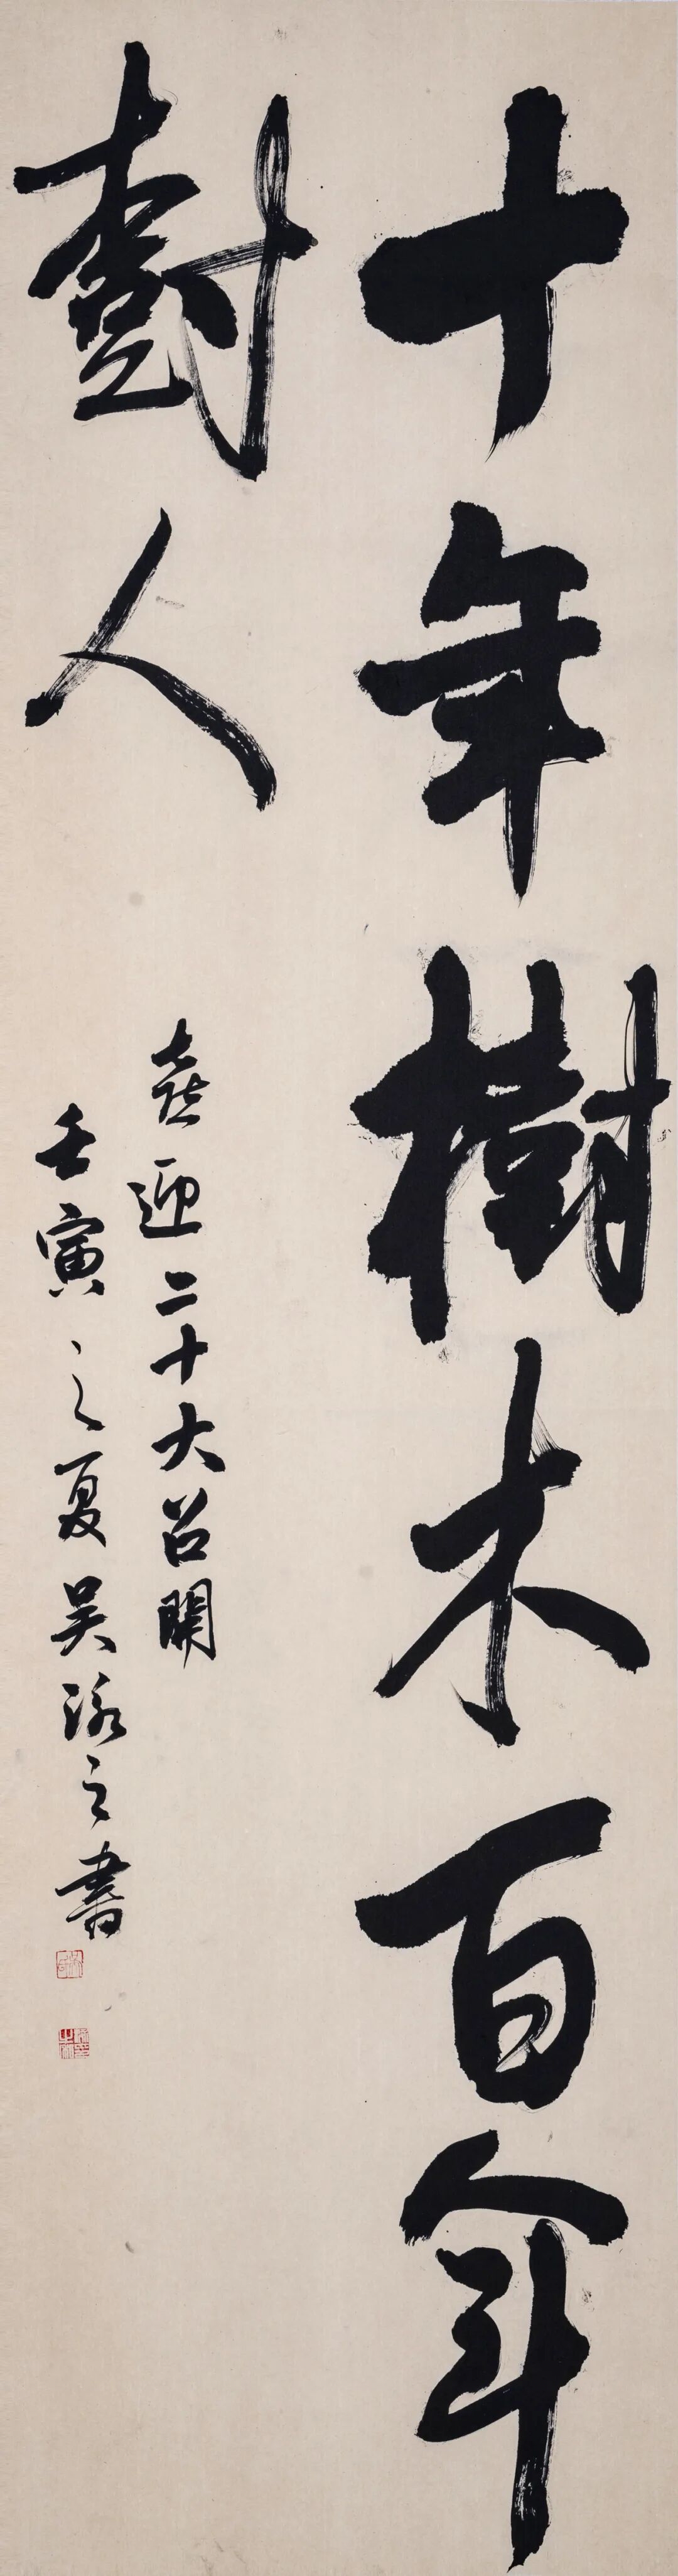 十年樹木百年
樹人
喜迎二十大召開
壬寅之夏吴泳之書